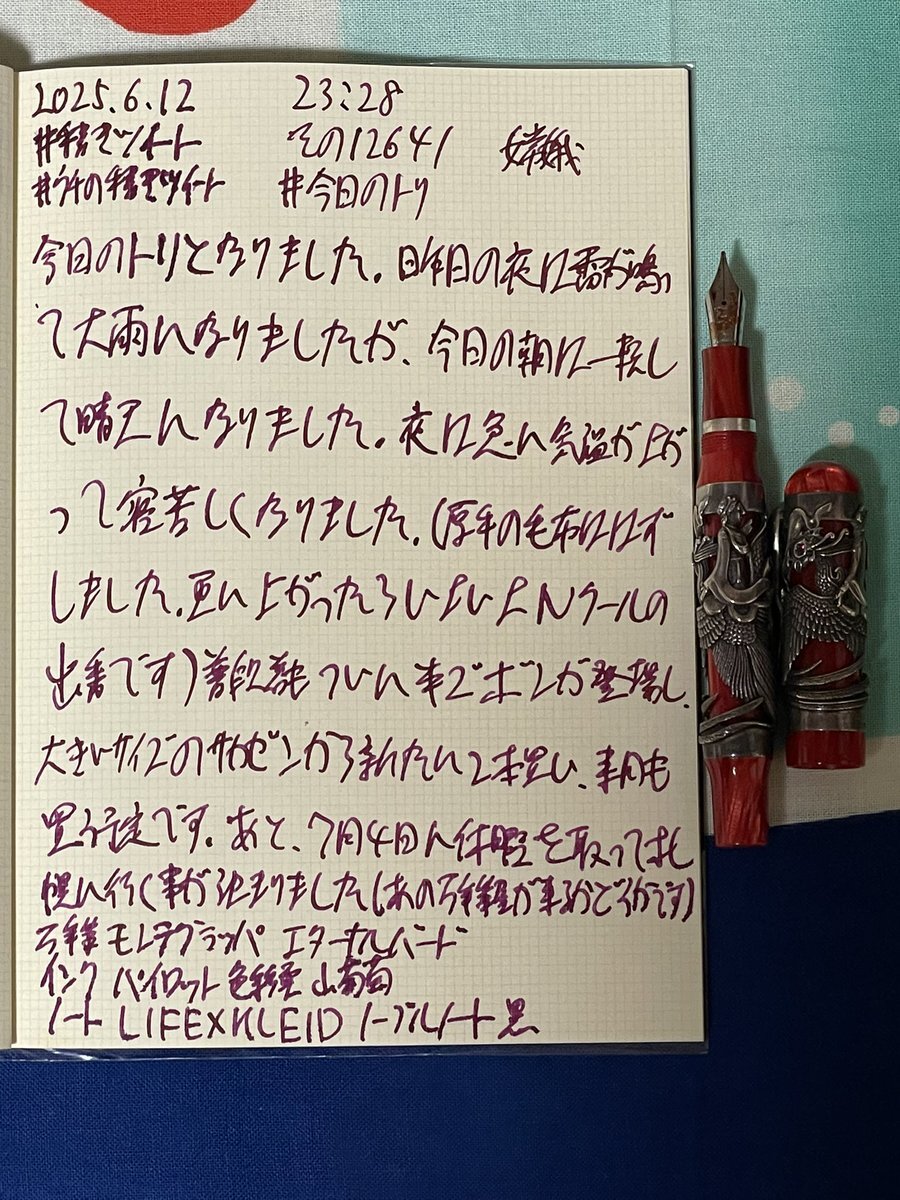 2025.6.12 23:28
#手書きツイート その12641 嫦娥
#ウチの手書きツイート #今日のトリ
今日のトリとなりました。昨日の夜に雷が鳴っ
て大雨になりましたが、今日の朝に一転し
て晴天になりました。夜に急に気温が上が
って寝苦しくなりました。(厚手の毛布ははず
しました。更に上がったらいよいよNクールの
出番です)普段着もついに半ズボンが登場し、
大きいサイズのサカゼンから新たに2本買い、来月も
買う予定です。あと、7月4日に休暇を取って
に行く事が決まりました(あの万年筆が来るかどうかです)
万年筆 モンテグラッパ エターナルバード
インク パイロット 色彩雫 山葡萄
ノート LIFE×KLEID ノーブルノート 黒